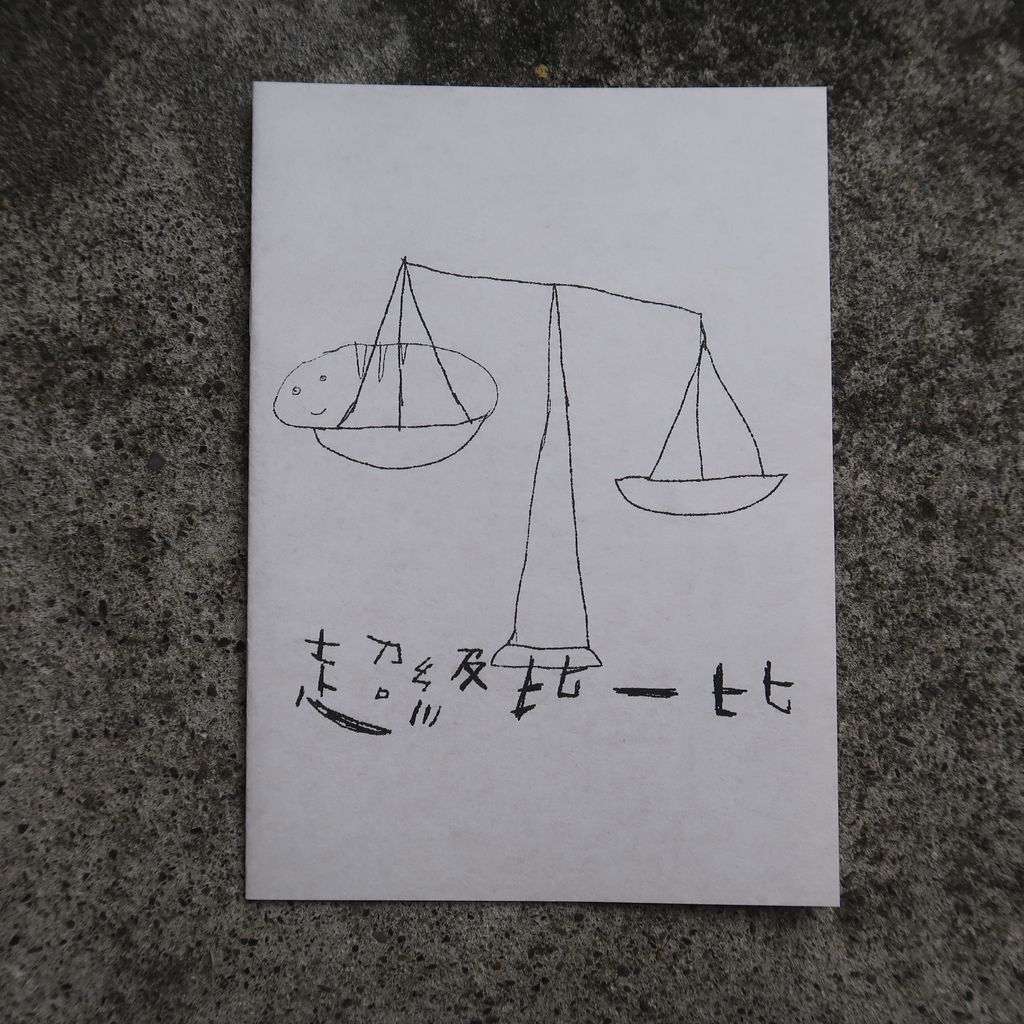 超級比一比